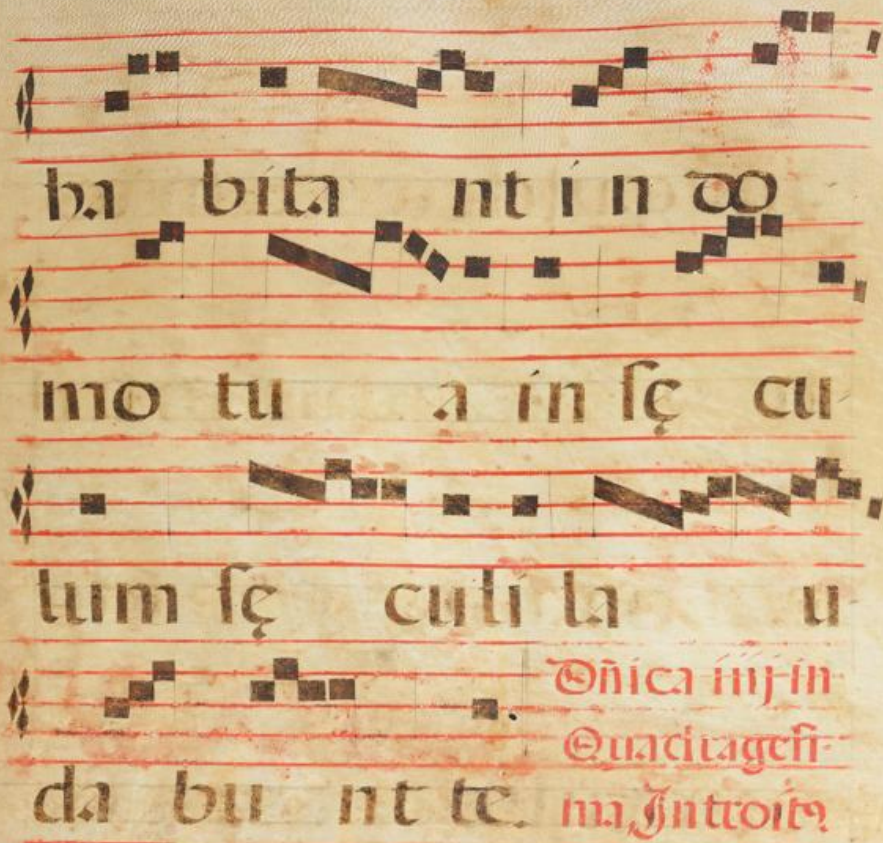 ha bita nt i n do
mo tu a in ſę cu
lum ſę culi la u
da bu nt te.
Dñica iiij in
Quadrageſi-
ma, Introitꝰ